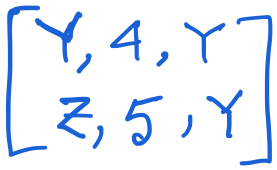 [Y, 4, Y
Z, 5, Y]